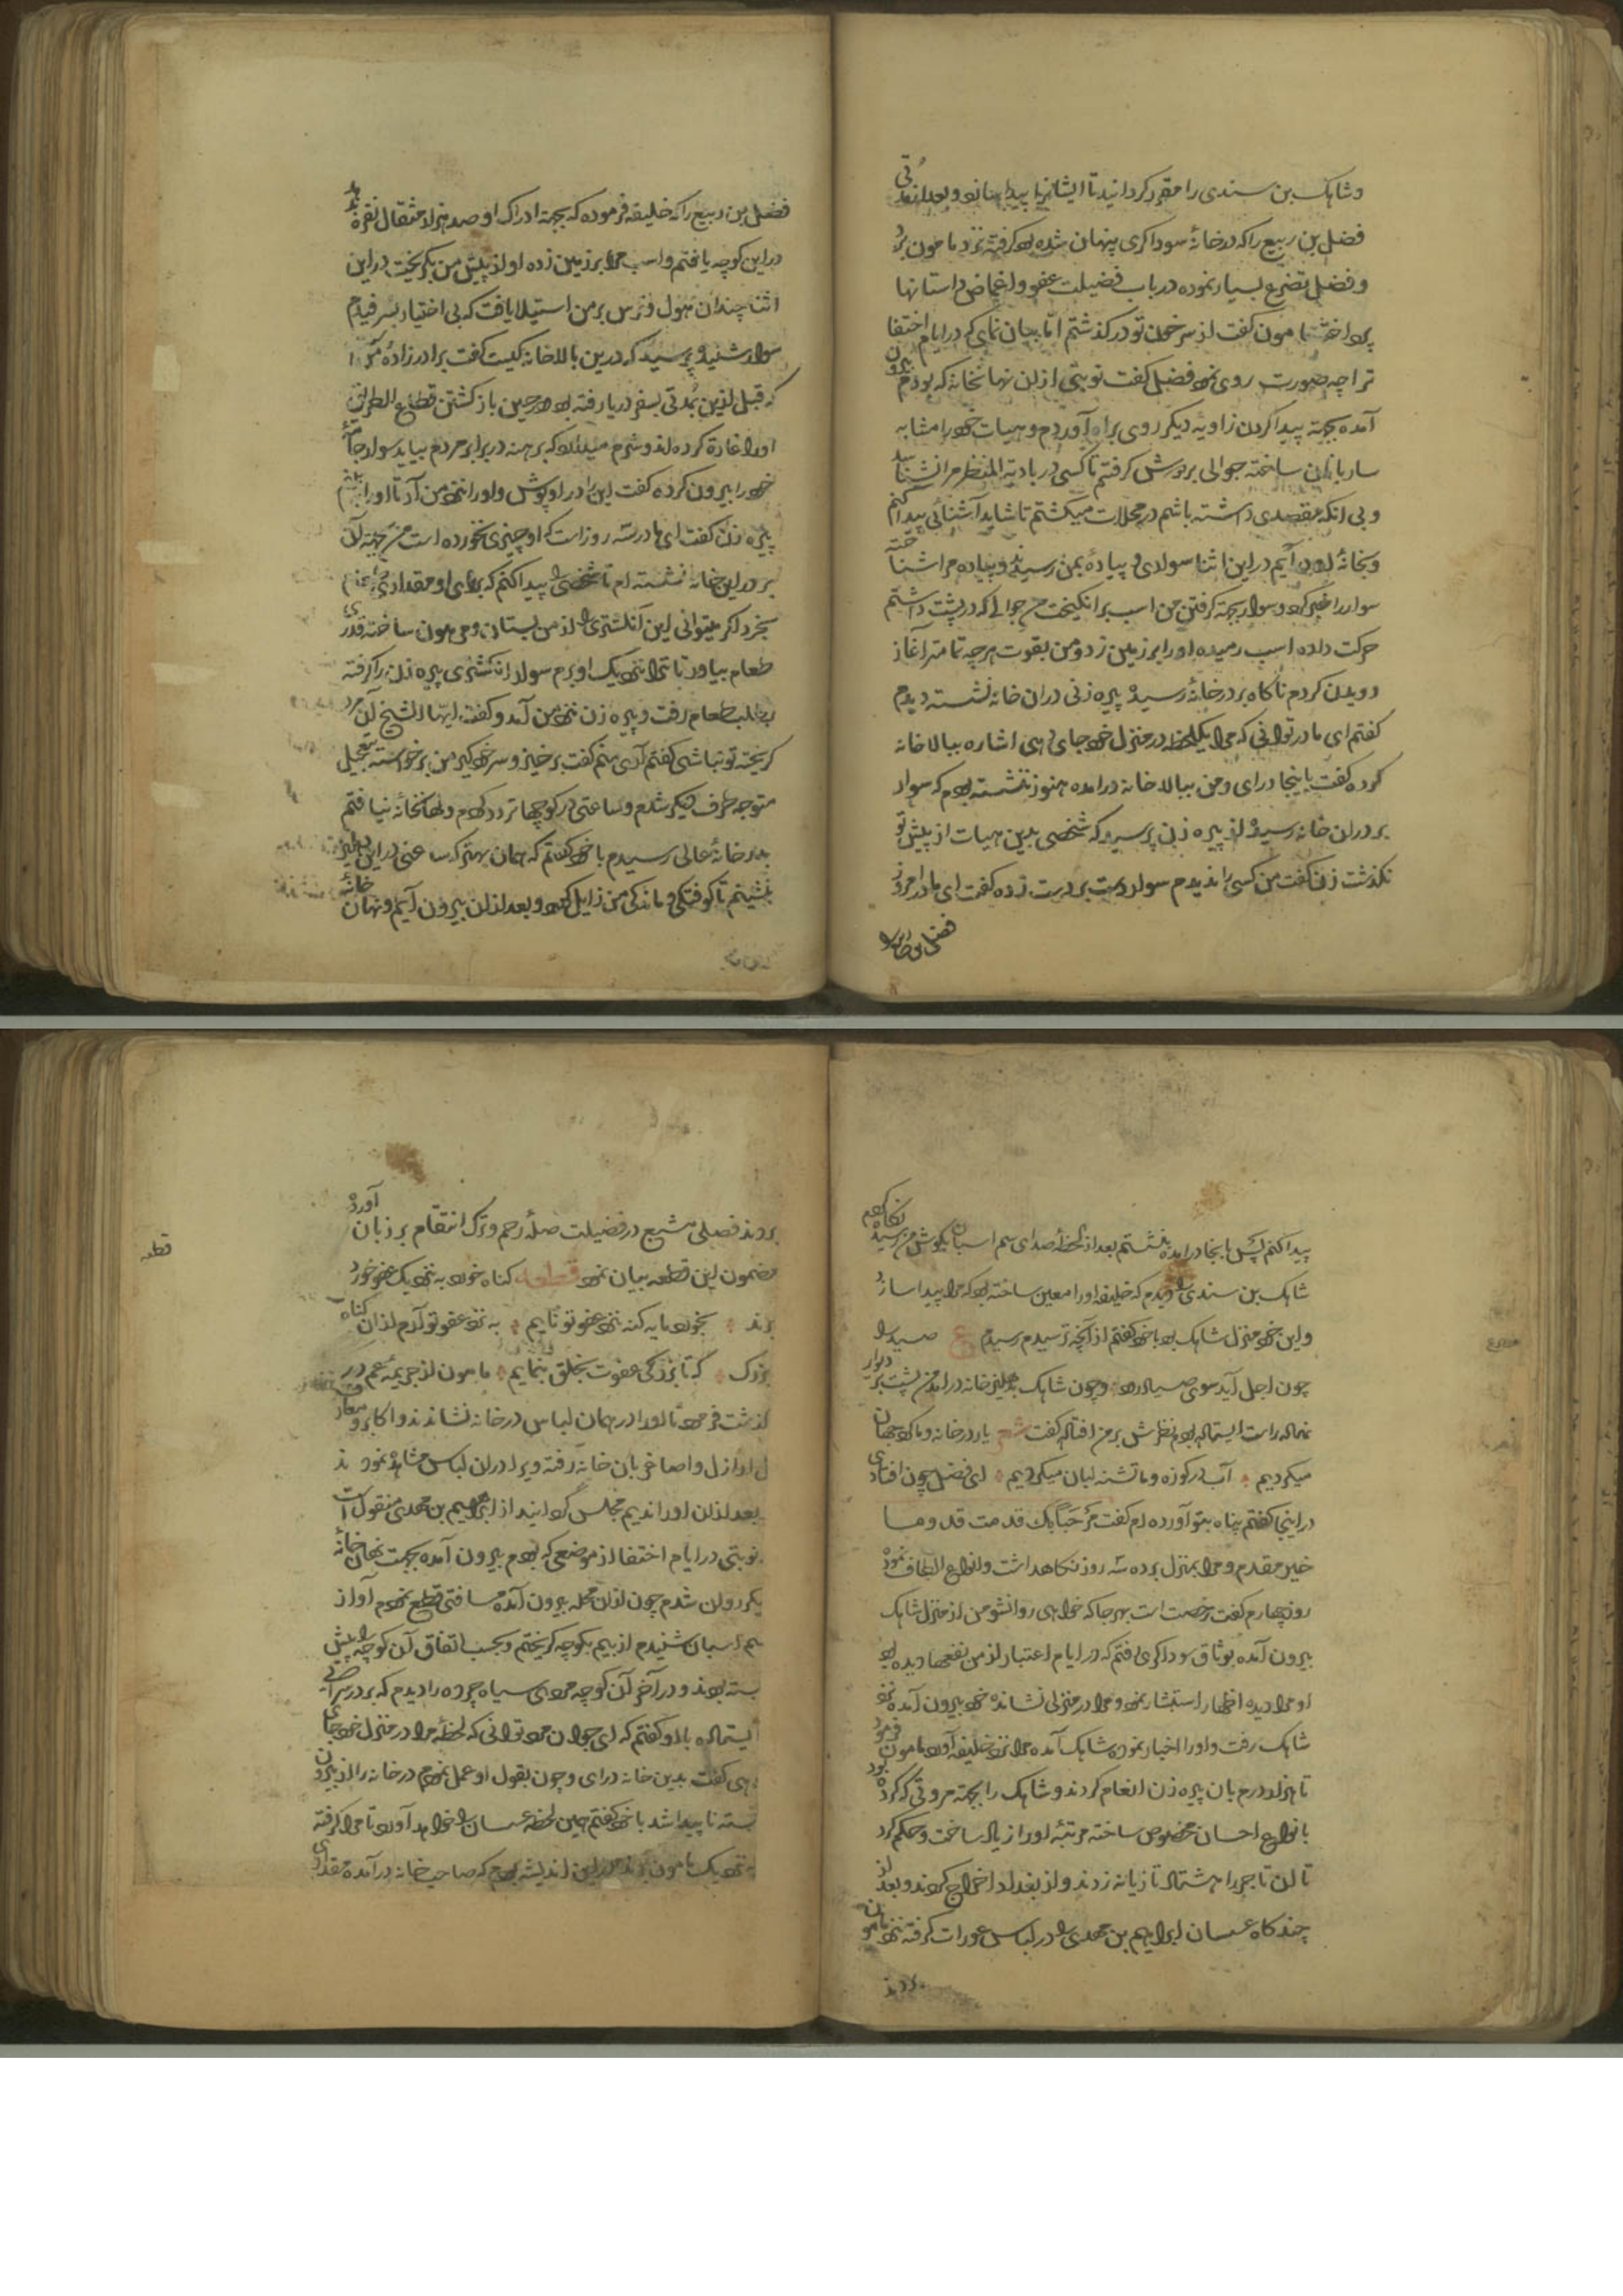 وشاهک بن سندی را مقرر کردانید تا ایشانرا پیدا سازد و بعد از مدتی
فضل بن ربیع را که در خانهٔ سوداکری پنهان شده بود کرفته نزد مامون برد
و فضل تضرع بسیار نموده در باب فضیلت عفو و اغماض داستانها
پرداخت مامون کفت از سر خون تو در کذشتم اما بیان نمای که در ایام اختفا
ترا چه صورت روی نمود فضل کفت نوبتی از ان نهانخانه که بودم بیرون
آمده بجهته پیدا کردن زاویه دیکر روی براه آوردم و هیات خود را مشابه
ساربانان ساخته جوالی بر دوش کرفتم تا کسی در بادیة النظر مرا نشناسد
و بی انکه مقصدی داشته باشم در محلات میکشتم تا شاید آشنائی پیدا کنم
و بخانهٔ او در آیم در این اثنا سواری و پیادهٔ بمن رسیدند و پیاده مرا شناخته
سوار را خبر کرد و سوار بجهته کرفتن من اسب برانکیخت من جوالی که در پشت داشتم
حرکت داده اسب رمیده او را بر زمین زد و من بقوت هر چه تمامتر آغاز
دویدن کردم ناکاه بر در خانهٔ رسیده پیره زنی در ان خانه نشسته دیدم
کفتم ای مادر توانی که مرا یکلحظه در منزل خود جای دهی اشاره ببالاخانه
کرده کفت باینجا درای و من ببالاخانه درامده هنوز ننشسته بودم که سوار
بر در ان خانه رسیده از پیره زن پرسید که شخصی بدین هیات از پیش تو
نکذشت زن کفت من کسی را ندیدم سوار دست بر دست زده کفت ای مادر امروز
فضل بن ربیع را
فضل بن ربیع را که خلیفه فرموده که بجهته ادراک او صد هزار مثقال نقره بدهند
در این کوچه یافتم و اسب مرا بر زمین زده او از پیش من بکریخت در این
اثنا چندان هول و ترس بر من استیلا یافت که بی اختیار بسرفیدم
سوار شنید و پرسید که درین بالاخانه کیست کفت برادرزادهٔ من
که قبل ازین مدتی بسفر دریا رفته بود در حین باز کشتن قطاع الطریق
اورا غارة کرده اند و شرم میدارد که برهنه در برابر مردم بیاید سوار جامهٔ
خود را بیرون کرده کفت این را در او پوش و اورا نزد من آر تا اورا
پیره زن کفت ای مادر سه روز است که او چیزی نخورده است من بجهته آن
بر در این خانه نشسته ام تا شخصی را پیدا کنم که برای او مقداری
بخرد اکر میتوانی این انکشتری را از من بستان و مرهون ساخته قدری
طعام بیاور تا ترا نزدیک او برم سوار انکشتری پیره زن را کرفته
بطلب طعام رفت و پیره زن نزد من آمد و کفت ایها الشیخ آن مرد
کریخته تو نباشی کفتم آری منم کفت برخیز و سر خود کیر من برخواسته بتعجیل
متوجه طرف دیکر شدم و ساعتی در کوچها تردد کردم و نهانخانهٔ نیافتم
بدر خانهٔ عالی رسیدم با خود کفتم که همان بهتر که ساعتی در این دهلیز
بنشینم تا کوفتکی و ماندکی من زایل کردد و بعد از ان بیرون آیم و نهان خانهٔ
پیدا کنم پس بانجا درآمده بنشستم بعد از لحظهٔ صدای سم اسبان بکوش من رسید نکاه کردم
شاهک بن سندی را دیدم که خلیفه اورا معین ساخته بود که مرا پیدا سازد
و این خود منزل شاهک بود با خود کفتم از آنچه ترسیدم رسیدم ع صید را
چون اجل آید سوی صیاد رود و چون شاهک بدهلیز خانه درامد من پشت بر دیوار
نهاده راست ایستاده بودم نظرش بر من افتاد کفت شعر یار در خانه و ما کرد جهان
میکردیم آب در کوزه و ما تشنه لبان میکردیم ای فضل چون افتادی
در اینجا کفتم پناه بتو آورده ام کفت مرحبا بک قدمت قدوما
خیر مقدم و مرا بمنزل برده سه روز نکاهداشت و انواع الطاف نمود
روز چهارم کفت رخصت است بهر جا که خواهی روانشو من از منزل شاهک
بیرون آمده بوثاق سوداکری رفتم که در ایام اعتبار از من نفعها دیده بود
او مرا دیده اظهار استبشار نمود و مرا در منزلی نشانده خود بیرون آمده نزد
شاهک رفت و اورا اخبار نموده شاهک آمده مرا نزد خلیفه آورد مامون فرمود
تا هزار درم بان پیره زن انعام کردند و شاهک را بجهته مروتی که کرده بود
بانواع احسان مخصوص ساخته مرتبهٔ اورا زیاد ساخت و حکم کرد
تا ان تاجر را هشتاد تازیانه زدند و از بغداد اخراج کردند و بعد از
چند کاه عسسان ابراهیم بن مهدی را در لباس عورات کرفته نزد مامون
بردند
بردند فصلی مشبع در فضیلت صلهٔ رحم و ترک انتقام بر زبان آورد
مضمون این قطعه بیان نمود قطعه کناه خود به نزدیک عفو خورد
برند بخرد مایه کنه نزد عفو تو نایم به نزد عفو تو آرم از ان کناه
بزرک که تا بزرکی عفوت بخلق بنمایم مامون از جریمهٔ عم در
کذشت فرمود تا اورا در همان لباس در خانه نشاندند و اکابر و معارف
اراذل و اصاغر بان خانه رفته ویرا در ان لباس مشاهده نمودند
بعد از ان اورا ندیم مجلس کردانید از ابراهیم بن مهدی منقول است
نوبتی در ایام اختفا از موضعی که بودم بیرون آمده بجهت نهان خانهٔ
دیکر روان شدم چون از ان محله بیرون آمده مسافتی قطع نمودم آواز
سم اسبان شنیدم از بیم بکوچه کریختم و بحسب اتفاق آن کوچه را پیش
بسته بودند و در آخر آن کوچه مردی سیاه چرده را دیدم که بر در سرائی
ایستاده با او کفتم که ای جوان مرد توانی که لحظهٔ مرا در منزل خود جای
دهی کفت بدین خانه درای و چون بقول او عمل نمودم در خانه را از بیرون
بسته ناپیدا شد با خود کفتم همین لحظه عسسان را خواهد آورد تا مرا کرفته
نزدیک مامون برند در این اندیشه بودم که صاحب خانه در آمده مقداری
قطعه
مصرع